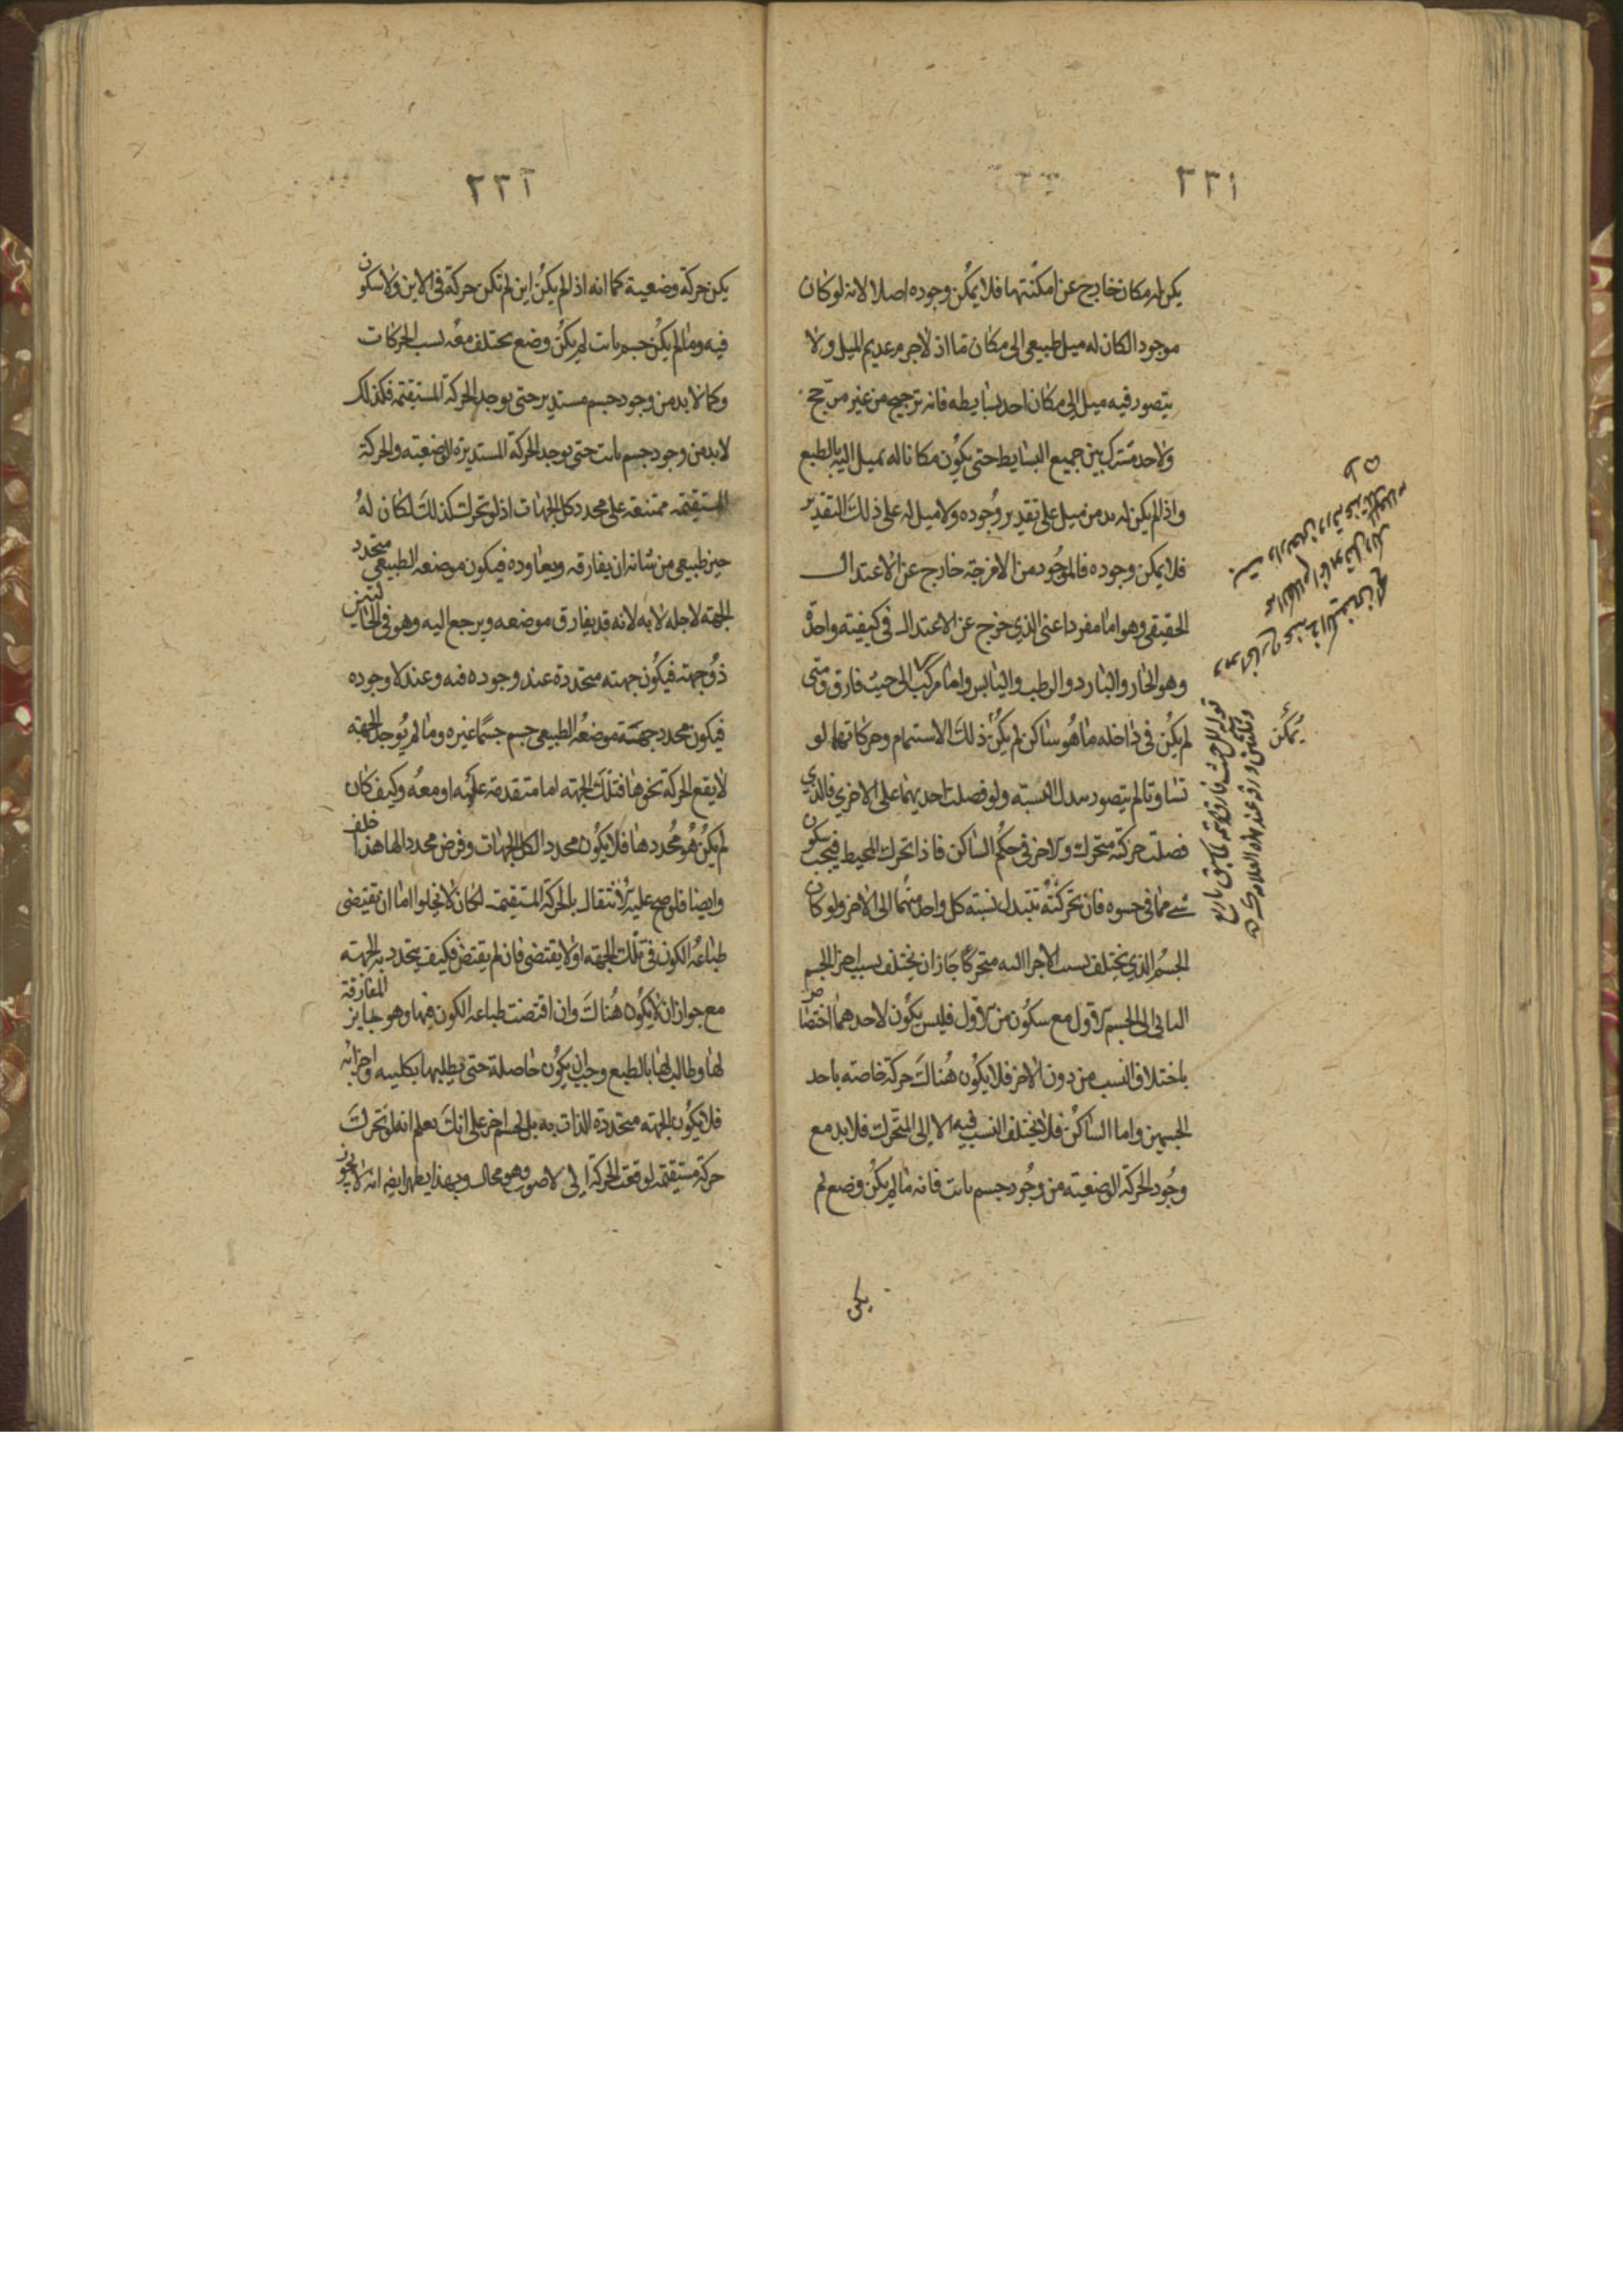 ٢٣١
يكن له مكان خارج عن امكنتها فلا يمكن وجوده اصلا لانه لو كان
موجودا لكان له ميل طبيعى الى مكان ما اذ لا جرم عديم الميل ولا
يتصور فيه ميل الى مكان احد بسايطه فانه ترجيح من غير مرجح
ولا حد مشترك بين جميع البسايط حتى يكون مكانا له يميل اليه بالطبع
واذ لم يكن له بد من ميل على تقدير وجوده ولا ميل له على ذلك التقدير
فلا يمكن وجوده فالموجود من الامزجة خارج عن الاعتدال
الحقيقى وهو اما مفرد اعنى الذى خرج عن الاعتدال فى كيفيته واحدة
وهو الحار والبارد والرطب واليابس واما مركب الى حيث فارق ومتى
لم يكن فى داخله ما هو ساكن لم يكن ذلك الاستتمام وحركاتها لو
تساوتا لم يتصور تبدل النسبة ولو فصلت احديهما على الاخرى فالذى
فصلت حركته متحرك والاخر فى حكم الساكن فاذا تحرك المحيط فيجب سكون
شى مما فى حسوه فان تحركته تتبدل نسبته كل واحد منهما الى الاخر ولو كان
الجسم الذى يختلف نسب الاجزا اليه متحركا جاز ان يختلف نسب اجزا الجسم
الثانى الى الجسم الاول مع سكون من الاول فليس يكون لاحدهما اختصاص
باختلاف النسب من دون الاخر فلا يكون هناك حركة خاصة باحد
الجسمين واما الساكن فلا يختلف النسب فيه الا الى المتحرك فلا بد مع
وجود الحركة الوضعيته من وجود جسم ثابت فانه ما لم يكن وضع لم
يكن
يمكن
٢٣٢
يكن حركة وضعية كما انه اذا لم يكن اين لم تكن حركة فى الاين ولا سكون
فيه وما لم يكن جسم ثابت لم يكن وضع تختلف معه نسب الحركات
وكما لا بد من وجود جسم مستدير حتى يوجد الحركة المستقيمة فكذلك
لا بد من وجود جسم ثابت حتى يوجد الحركة المستديرة الوضعيته والحركة
المستقيمه ممتنعه على محدد كل الجهات اذ لو تحرك كذلك لكان له
حيز طبيعى من شانه ان يفارقه ويعاوده فيكون موضعه الطبيعى متحدد
الجهة لاجله لا به لانه قد يفارق موضعه ويرجع اليه وهو فى الحالتين
ذو جهة فيكون جهته متحددة عند وجوده فيه وعند لا وجوده
فيكون محدد جهة موضعه الطبيعى جسم جسما غيره وما لم يوجد الجهة
لا يقع الحركة نحوها فتلك الجهته اما متقدمة عليه او معه وكيف كان
لم يكن هو محددها فلا يكون محددا لكل الجهات وفرض محددا لها هذا خلف
وايضا فلو صح عليه الانتقال بالحركة المستقيمة لكان لا يخلوا اما ان تقتضى
طباعه الكون فى تلك الجهة او لا يقتضى فان لم يقتض فكيف يتحدد به الجهته
مع جواز ان لا يكون هناك وان اقتضت طباعه الكون فيها وهو جايز المفارقة
لها وطالب لها بالطبع وجب ان يكون حاصلة حتى يطلبها بكليته واجزائه
فلا يكون الجهته متحددة الذات به بل بجسم اخر على انك تعلم انه لو تحرك
حركة مستقيمة لوقعت الحركة الى لا صوب وهو محال وبهذا يظهر ايضا انه لا يجوز